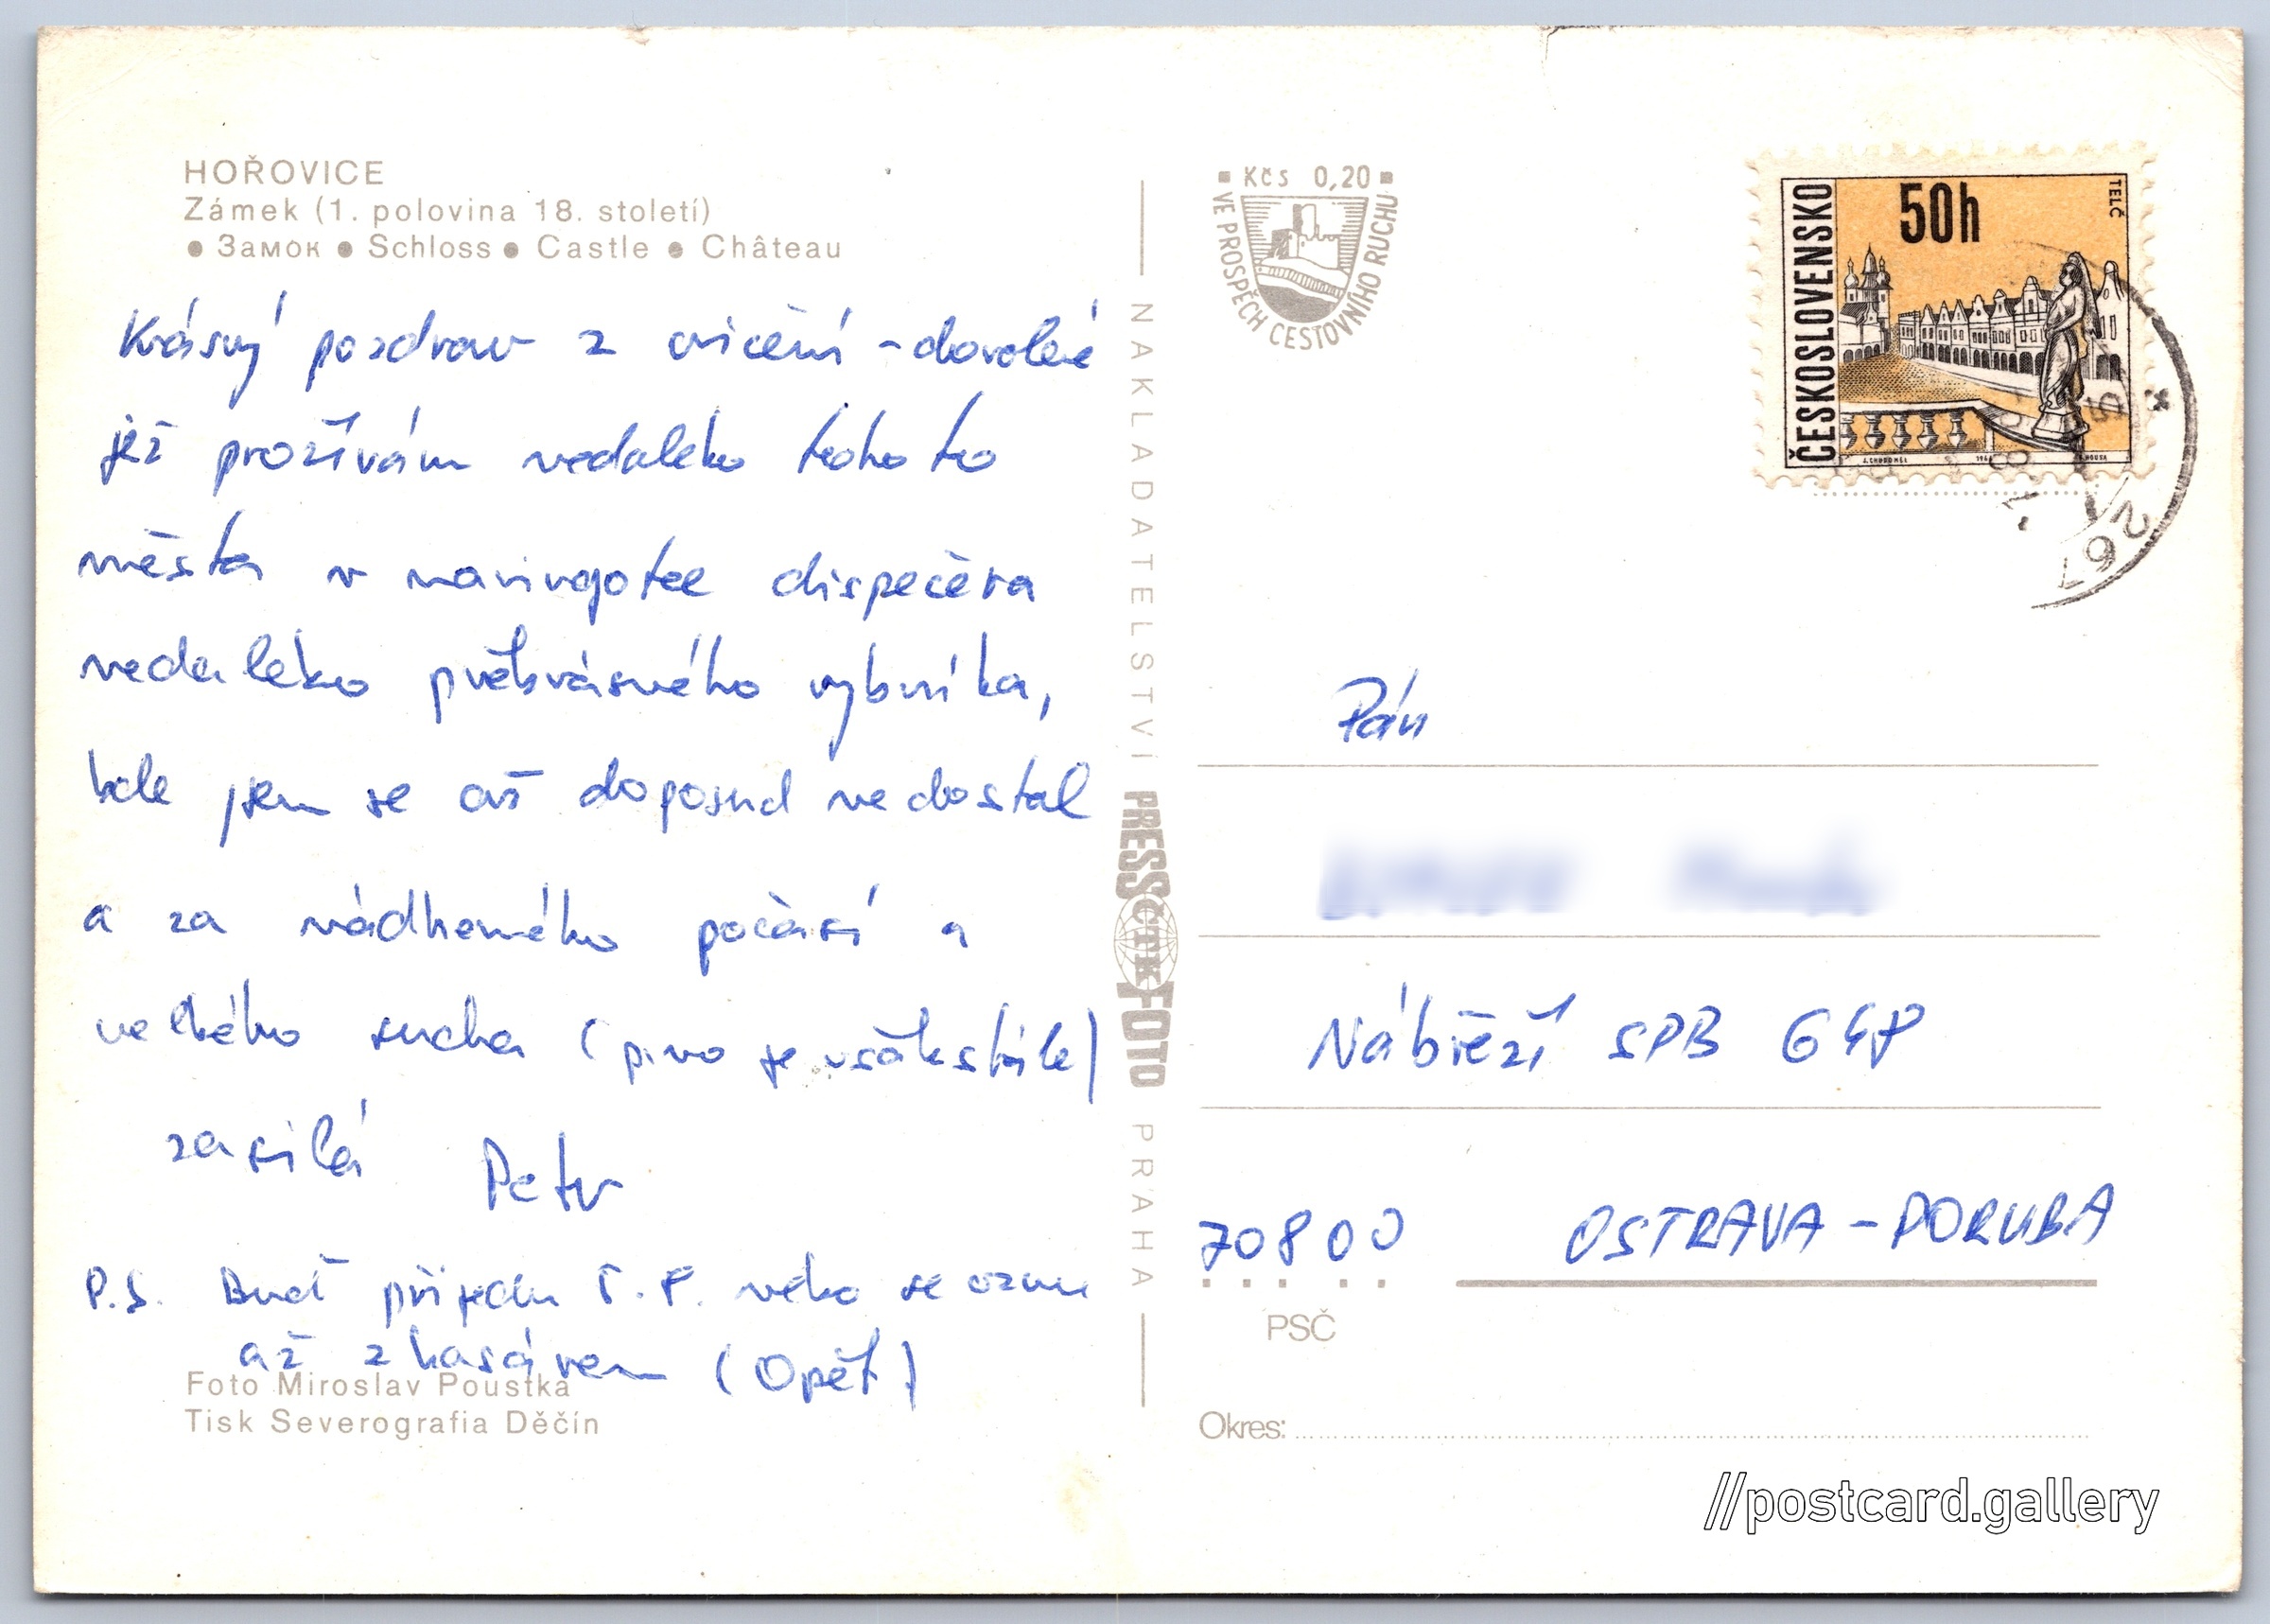 HOŘOVICE
Zámek (1. polovina 18. století)
● Замок ● Schloss ● Castle ● Château
Krásný pozdrav z cvičení - dovolené
jež prožívám nedaleko tohoto
města v maringotce dispečera
nedaleko překrásného rybníka,
kde jsem se až doposud nedostal
a za nádherného počasí a
velkého sucha (pivo je však stále)
zasílá Petr
P.S. Buď přijedu nebo se ozvu
až z kasáren (Opět)
Foto Miroslav Poustka
Tisk Severografia Děčín
NAKLADATELSTVÍ PRESSFOTO PRAHA
ČTK
■ Kčs 0,20 ■
VE PROSPĚCH CESTOVNÍHO RUCHU
ČESKOSLOVENSKO
50h
TELČ
J.CHUDOMEL
267
Pán
Nábřeží SPB
70800 OSTRAVA - PORUBA
PSČ
Okres:
//postcard.gallery